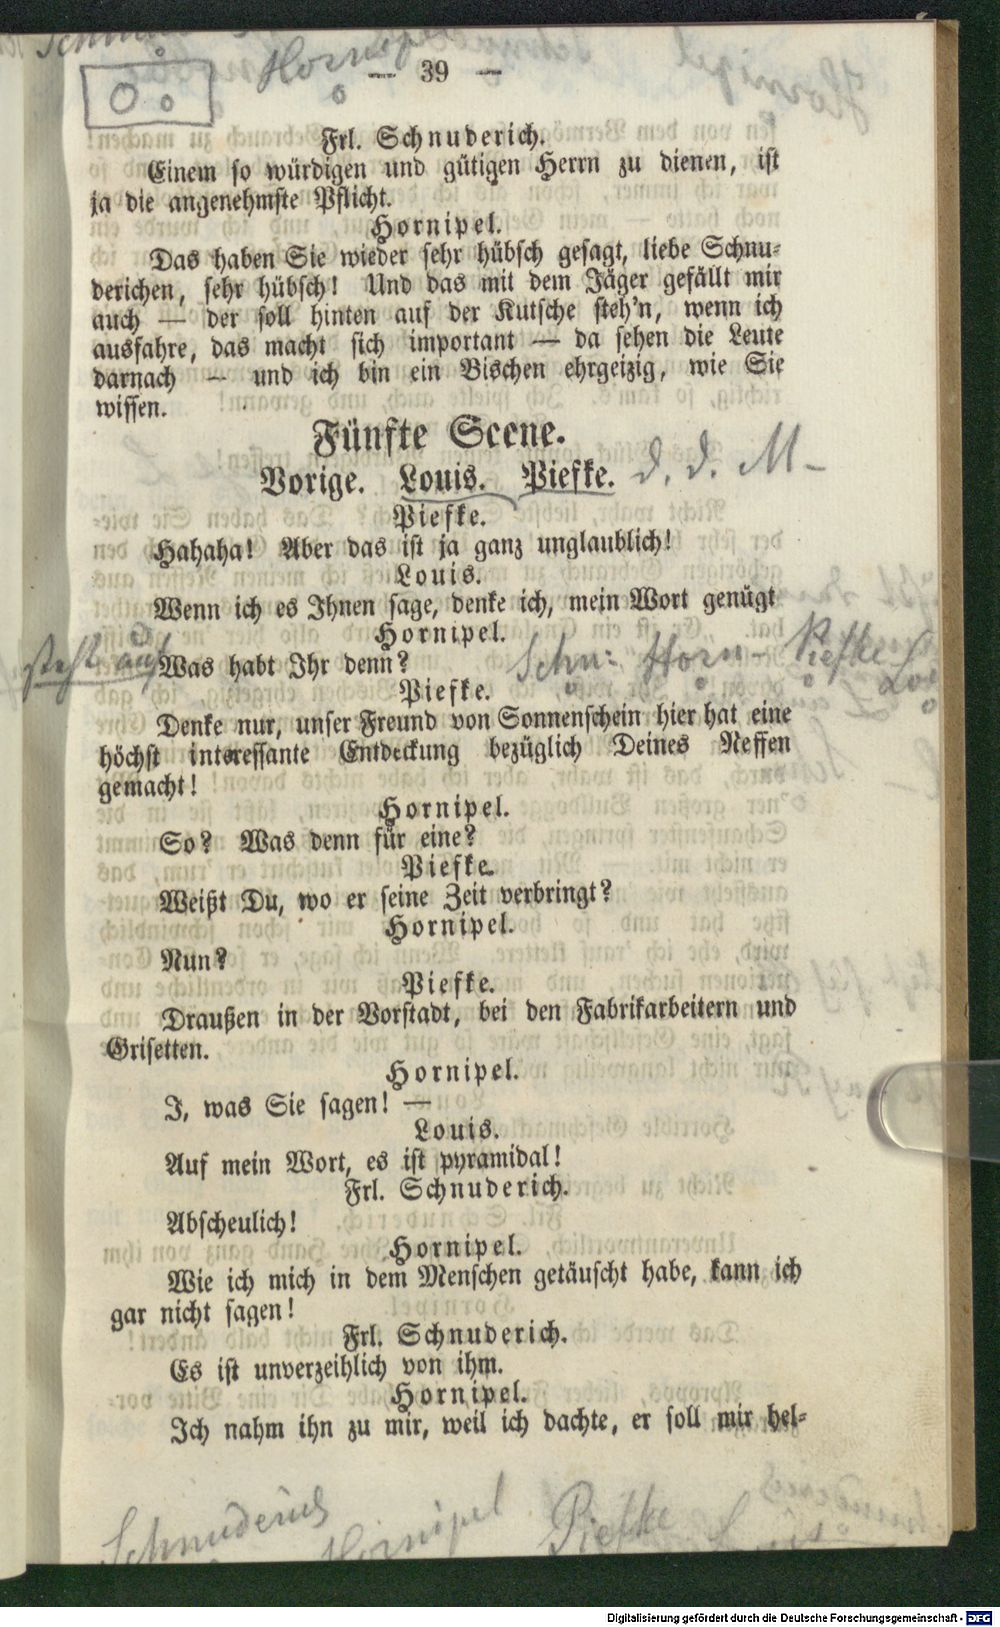 Hornipel
— 39 —
Frl. Schnuderich.
Einem so würdigen und gütigen Herrn zu dienen, ist
ja die angenehmste Pflicht.
Hornipel.
Das haben Sie wieder sehr hübsch gesagt, liebe Schnu-
derichen, sehr hübsch! Und das mit dem Jäger gefällt mir
auch — der soll hinten auf der Kutsche steh'n, wenn ich
ausfahre, das macht sich important — da sehen die Leute
darnach — und ich bin ein Bischen ehrgeizig, wie Sie
wissen.
Fünfte Scene.
Vorige. Louis. Piefke. d. d. M-
Piefke.
Hahaha! Aber das ist ja ganz unglaublich!
Louis.
Wenn ich es Ihnen sage, denke ich, mein Wort genügt
Hornipel.
steht auf Was habt Ihr denn? Schn: Horn- Piefke Lou
Piefke.
Denke nur, unser Freund von Sonnenschein hier hat eine
höchst interessante Entdeckung bezüglich Deines Neffen
gemacht!
Hornipel.
So? Was denn für eine?
Piefke.
Weißt Du, wo er seine Zeit verbringt?
Hornipel.
Nun?
Piefke.
Draußen in der Vorstadt, bei den Fabrikarbeitern und
Grisetten.
Hornipel.
I, was Sie sagen! —
Louis.
Auf mein Wort, es ist pyramidal!
Frl. Schnuderich.
Abscheulich!
Hornipel.
Wie ich mich in dem Menschen getäuscht habe, kann ich
gar nicht sagen!
Frl. Schnuderich.
Es ist unverzeihlich von ihm.
Hornipel.
Ich nahm ihn zu mir, weil ich dachte, er soll mir hel-
Schnuderich Hornipel Piefke Louis
Digitalisierung gefördert durch die Deutsche Forschungsgemeinschaft - DFG